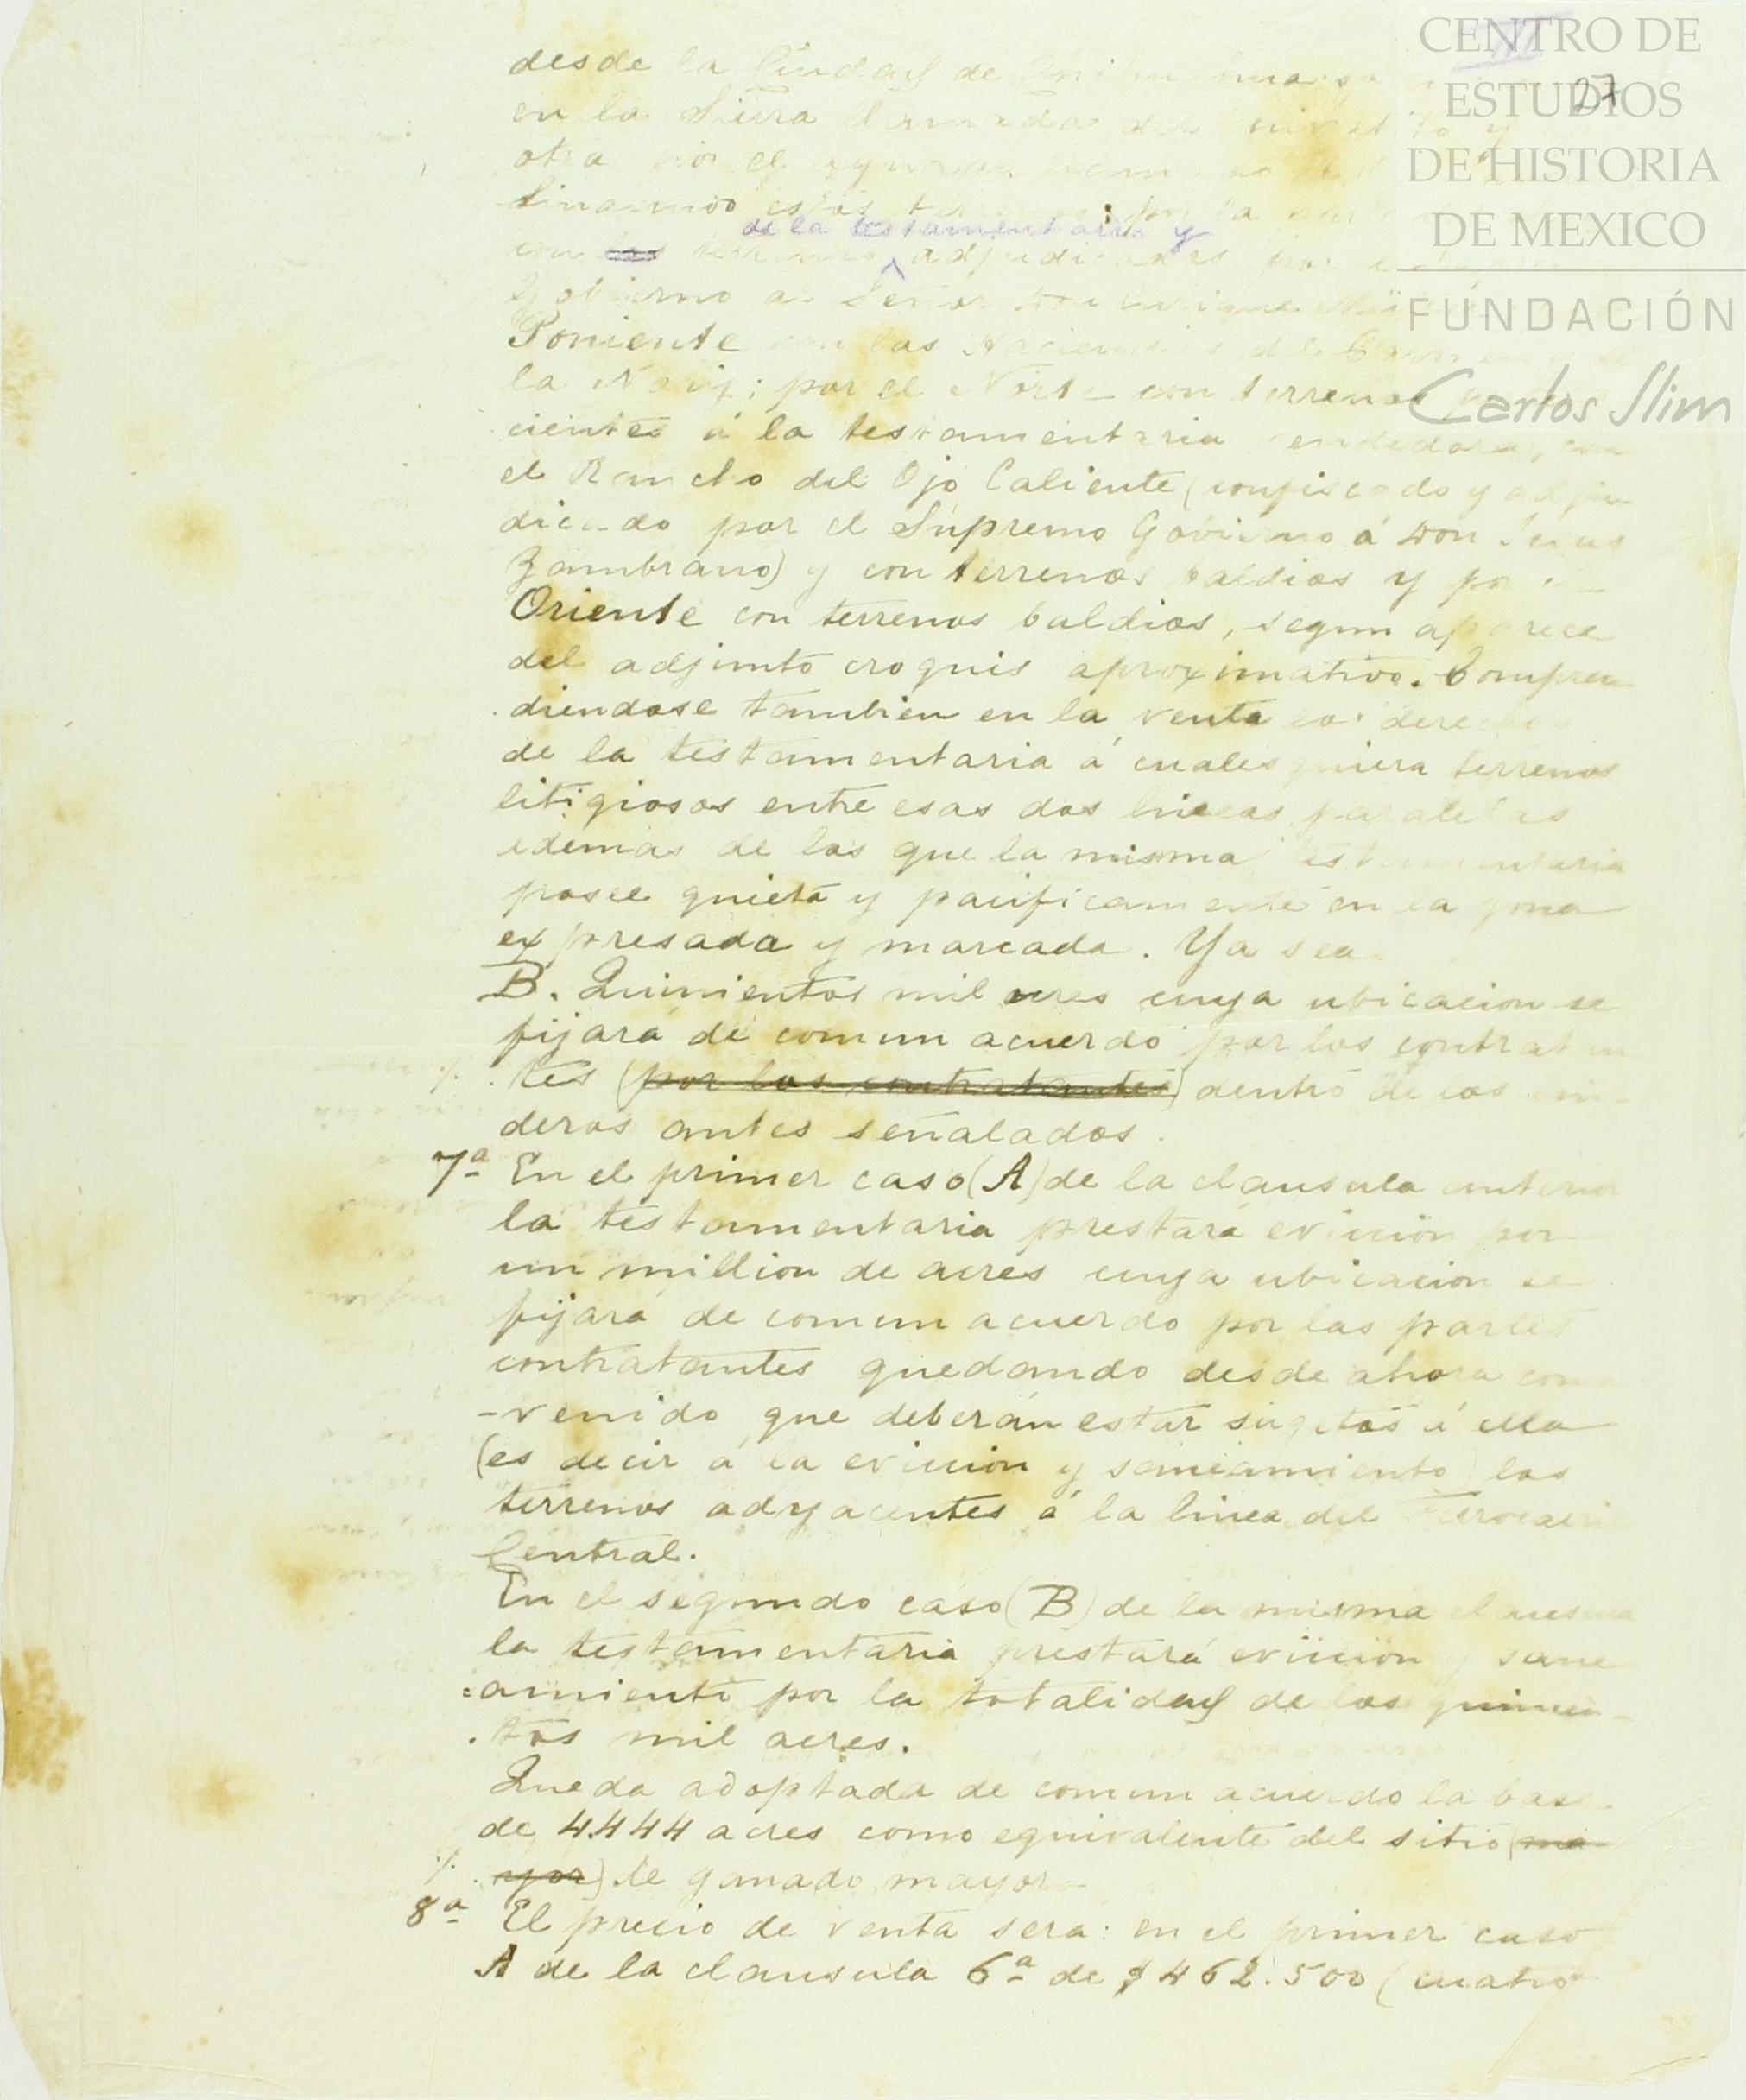 CENTRO DE
ESTUDIOS
DE HISTORIA
DE MEXICO
FUNDACIÓN
Carlos Slim
27
desde la Ciudad de
en la Sierra llamada del y
otra por el
linando estos por la
de la testamentaria y
con los terrenos adjudicados por
Gobierno al Señor Don Enrique
Poniente con las Haciendas del Carmen y de
la Nariz; por el Norte con terrenos
cientes á la testamentaria vendedora, con
el Rancho del Ojo Caliente (confiscado y adju-
dicado por el Supremo Gobierno á Don Jesus
Zambrano) y con terrenos baldios y por el
Oriente con terrenos baldios, segun aparece
del adjunto croquis aproximativo. Compren
diendose tambien en la venta los derechos
de la testamentaria á cualesquiera terrenos
litigiosos entre esas dos lineas paralelas
ademas de los que la misma testamentaria
posee quieta y pacificamente en la zona
expresada y marcada. Ya sea
B. Quinientos mil acres cuya ubicacion se
fijará de comun acuerdo por los contratan
·/. tes (por los contratantes) dentro de los lin-
deros antes señalados.
7ª En el primer caso (A) de la clausula anterior
la testamentaria prestará eviccion por
un million de acres cuya ubicacion se
fijará de comun acuerdo por las partes
contratantes quedando desde ahora con
-venido que deberán estar sugetos á ella
(es decir á la eviccion y saneamiento) los
terrenos adyacentes á la linea del Ferrocarril
Central.
En el segundo caso (B) de la misma clausula
la testamentaria prestará eviccion y sane
=amiento por la totalidad de los quinien-
.tos mil acres.
Queda adoptada de comun acuerdo la base
de 4.444 acres como equivalente del sitio (ma
·/. yor) de ganado mayor-
8ª El precio de venta sera: en el primer caso
A de la clausula 6ª de $462.500 (cuatro